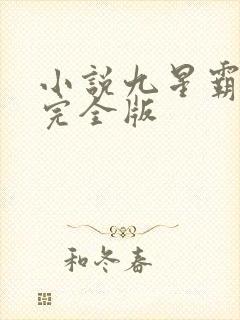 小説九星霸
完全版
和冬春